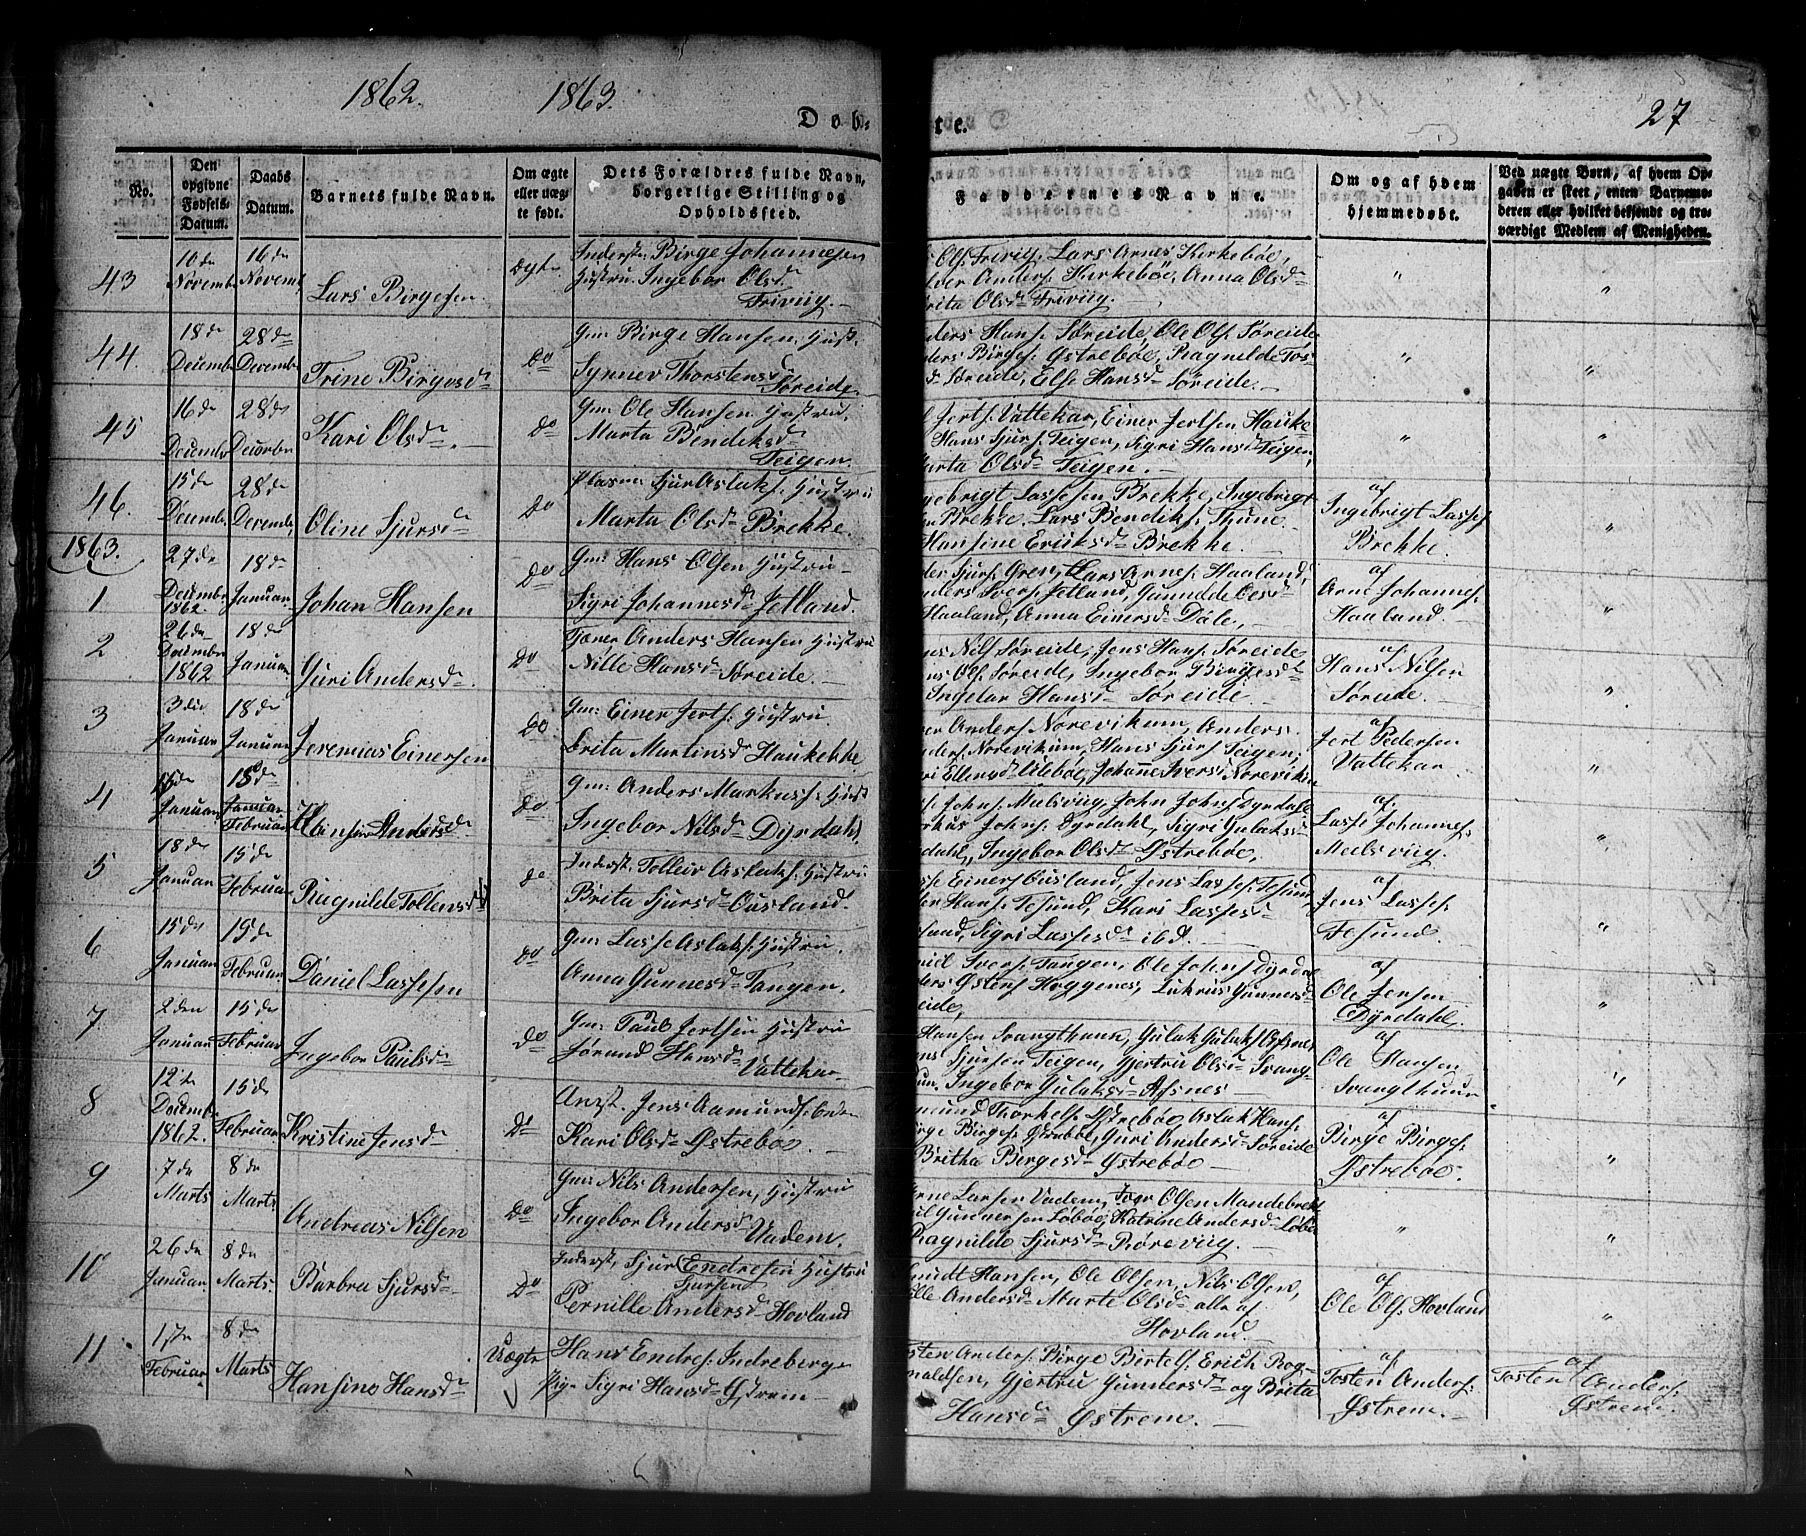 1862. 1863.
Døb-
te.
27
No.
Den opgivne Fødsels-Datum.
Daabs Datum.
Barnets fulde Navn.
Om ægte eller uægte født.
Dets Forældres fulde Navn, borgerlige Stilling og Opholdsfted.
Faddernes Navne.
Om og af hvem hjemmedøbt.
Ved uægte Børn, af hvem Opgaven er skeet, enten Barnemoderen eller hvilket bekjendt og troværdigt Medlem af Menigheden.
43 10de Novembr 16de Novemb Lars Birgesen Ægte
Inderst: Birge Johannesen
Hustru: Ingebor Olsd
Friviig.
Ols Friviig, Lars Arnes Kirkebøe,
Anders Kirkebøe, Anna Olsd
Brita Olsd Friviig.
"
"
44. 18de Decembr 28de Decembr Trine Birgesd Do
Gm: Birge Hansen, Hust.
Synnev Thorstensd
Søreide
Hans: Søreide, Ole Ols: Søreide
Birges: Østrebøe, Ragnilde Tos
d Søreide, Else Hansd Søreide.
"
"
45 16de Decembr 28de Decembr Kari Olsd Do
Gm: Ole Hansen Hustru,
Marta Bendiksd
Teigen.
Jerts: Vattekar, Einer Jertsen Hauke
Hans Sjurs: Teigen, Sigri Hansd Teigen,
Marta Olsd Teigen.
"
"
46. 15de Decembr 28de Decembr Oline Sjursd Do
Plasm: Sjur Aslaks: Hustru
Marta Olsd Brekke.
Ingebrigt Lassesen Brekke, Ingebrigt
Brekke, Lars Bendiks: Thune
Hansine Eriksd Brekke.
af
Ingebrigt Lasses
Brekke.
"
1863.
1 27de Decembr 1862. 18de Januar Johan Hansen Do
Gm: Hans Olsen Hustru
Sigri Johannesd Jelland.
Sjurs: Gren, Lars Arnes: Haaland,
Anders Ivers: Jetland, Gunilde
Haaland, Anna Einersd Dale,
af
Arne Johannes:
Haaland.
"
2 26de Decembr 1862 18de Januar Guri Andersd Do
Tjener Anders Hansen Hustru
Nille Hansd Søreide.
Nils: Søreide, Jens Hans: Søreide
Ols: Søreide, Ingebor Birgesd
Ingebor Hansd Søreide
af
Hans Nilsen
Søreide.
"
3 3die Januar 18de Januar Jeremias Einersen Do
Gm: Einer Jerts: Hustru
Brita Martinsd Haukekke
Anders Norevikum, Anders
Norevikum, Hans Sjurs Teigen,
af
Jert Pedersen
Vattekar
"
4 Januar 15de Januar Februar Hansine Andersd Do
Gm: Anders Markuss: Hust
Ingebor Nilsd Dyrdahl.
Johns: Mulsviig, John Johns Dyrdahl
Johns: Dyrdahl, Sigri Gulaksd
Ingebor Olsd Østrebøe,
af
Lasse Johannes:
Meelsviig.
"
5 18de Januar 15de Februar Ragnilde Tolleivsd do
Inderst. Tolleiv Aslaks: Hustru
Brita Sjursd Ousland.
Einers Ousland, Jens Lasses: Tesund
Hans: Tesund, Kari Lassesd
Sigri Lassesd ibd.
af
Jens Lasses:
Tesund.
"
6 15de Januar 15de Februar Daniel Lassesen Do
Gm: Lasse Aslaks: Hustru.
Anna Gunnersd Tangen.
Ivers: Tangen, Ole Johns Dyrdal
Østens Høggenes, Gunnersd
Søreide,
af
Ole Jensen
Dyrdahl.
"
7. 2den Januar 15de Februar Ingebor Paulsd Do
Gm: Paul Jertsen Hustru
Jørund Hansd
Vattekar
Hansen Svangthuun, Gulak Gulaks: Afsnes,
Sjursen Teigen, Gjertru Olsd Svang-
Ingebor Gulaksd Afsnes
af
Ole Hansen
Svangthuun
"
8 12te Decembr 1862. 15de Februar Kristine Jensd Do
Jens Aamunds:
Kari Olsd Østrebøe.
Thorkels: Østrebøe Aslak Hans:
Birges: Østrebøe, Guri Andersd Søreide
Britha Bergesd Østrebøe
af
Birge Birges:
Østrebøe.
"
9 7de Marts 8de Marts Andreas Nilsen Do
Gm: Nils Andersen, Hustru
Ingebor Andersd
Vadem.
Arne Larsen Vadem, Ivar Olsen Mandebrekk
Gunnersen Løbøe, Katrine Andersd Løbø
Ragnilde Sjursd Røreviig.
"
"
10 26de Januar 8de Marts Barbra Sjursd Do
Inderst, Sjur Endresen Hustru
Sjursen
Pernille Andersd Hovland
Hansen, Ole Olsen, Nils Olsen,
Nille Andersd Marte Olsd alle af
Hovland.
af
Ole Ols: Hovland
"
11 1ste Februar 8de Marts Hansine Hansd Uægte
Hans Endres: Indreberge
Pige Sigri Hansd Østrem
Tosten Anders: Birge Birtes: Erich Rog-
naldsen, Gjertru Gunnersd og Brita
Hansd Østrem.
af
Tosten Anders:
Østrem.
af
Tosten Anders:
Østrem.